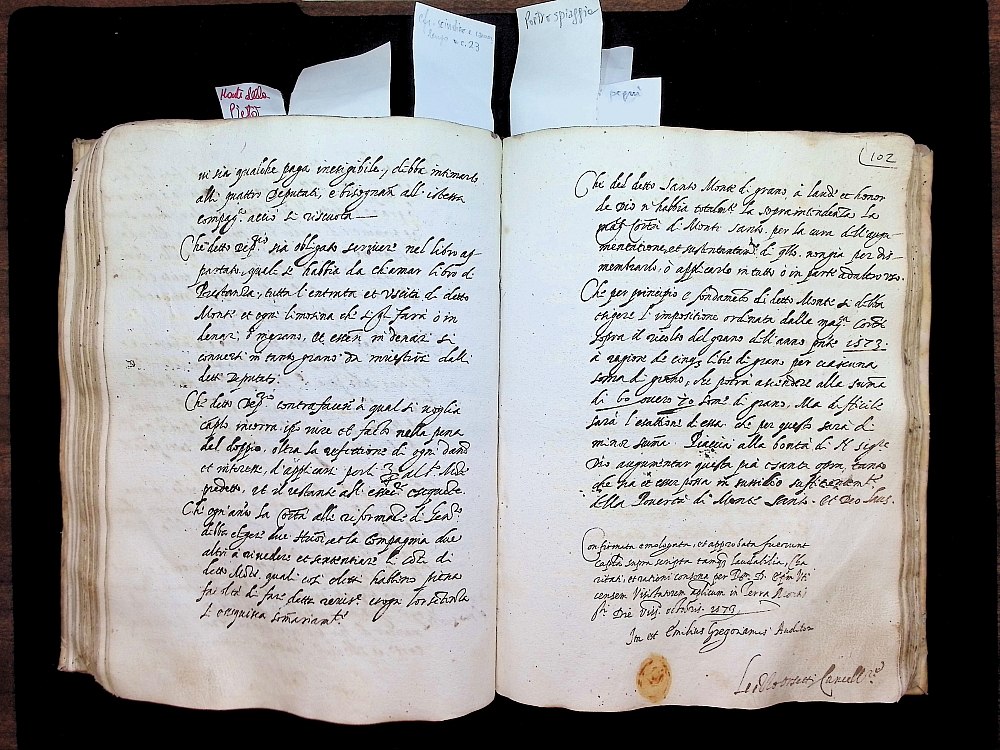 Monte della
Pietà
c. 23
Pietro spiaggia
pegni
vi sia qualche paga inesigibile, debba intimarlo
alli quattro Deputati, e bisognan all' istessa
compag.a acciò si riscuota
Che detto Dep.to sia obligato scrivere nel libro ap-
partato, qual si habbia da chiamar libro di
Prestanza, tutta l'entrata et uscita di detto
Monte et ogni limosina che si fara ò in
denar, ò in grano, et essen in denar si
converti in tanto grano da
detti Deputati.
Che detto Dep.to contrafacen à qual si voglia
cap.lo incorra ipso iure et facto nella pena
del doppio, oltra la refettione di ogni danno
et interesse, d'applicarsi per li 3/4 al S. Mote
predetto, et il restante all' essequ.
Che ogn' anno la alle riforme di Genn.o
debba eleger due et la Compagnia due
altri à rivedere et sententiare li di
detto Mote, quali così eletti habbino piena
facoltà di far detta revis.e et ogni lor sententia
si essequisca somariam.te
102
Che del detto Santo Monte di grano, à laude et honor
de Dio n' habbia totalm.te la soprainten denza la
di Monte Santo, per la cura dell' aug-
mentatione, et sustentation di q.llo, non gia per dis-
membrarlo, ò applicarlo in tutto ò in parte ad altro uso.
Che per principio e fondamento di detto Monte si debba
exigere l' impositione ordinata dalla mag.ca
sopra il ricolto del grano dell' anno pnte 1573.
à ragione de cinq. libre di grano per ciascuna
soma di grano, che potrà ascendere alla summa
di 60 overo 70 some di grano, Ma difficile
sarà l' esattione di essa che per questo sarà di
minor summa. Piaccia alla bontà di N. Sig.re
Dio augumentar questa pia e santa opra, tanto
che sia et esser possa in sussidio sufficiente
della Povertà di Monte Santo. Et Deo laus.
Confirmata emologata, et approbata fuerunt
cap.la supra scripta tamq. laudabilia, Cha
ritati, et rationi consona per D. D. Ep.m
censem Visitatorem Ap.licum in Terra Montis
S.ti Die octobris 1573.
Ita est Emilius Gregorianus Auditor
Cancell.re